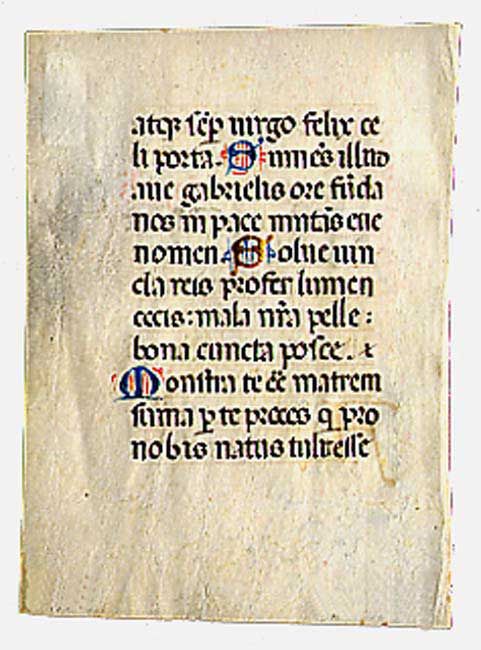 atqȝ sēp uirgo felix ce
li porta. Sumēs illud
aue gabrielis ore fūda
nos in pace mutās eue
nomen. Solue uin
cla reis profer lumen
cecis: mala nr̄a pelle:
bona cuncta posce. ⁊
Monstra te eē matrem
sumat p te preces q pro
nobis natus tulit esse